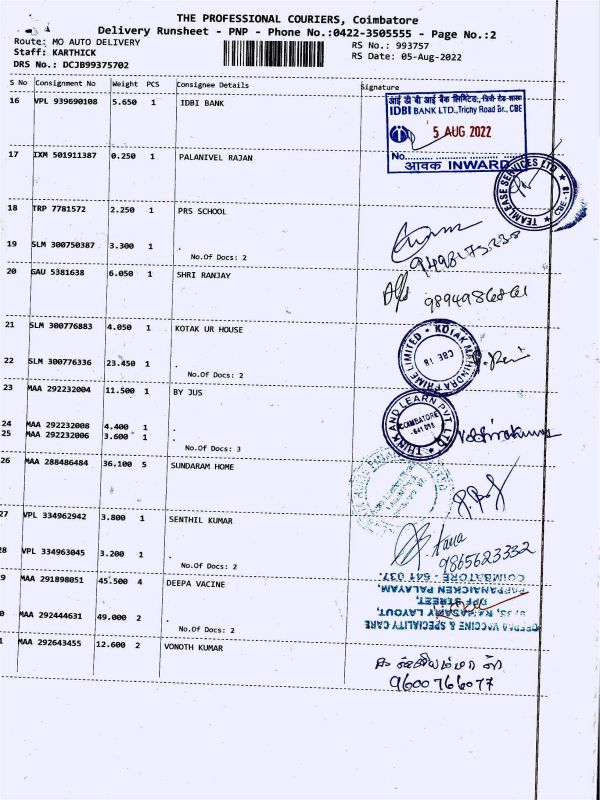 THE PROFESSIONAL COURIERS, Coimbatore
Delivery Runsheet - PNP - Phone No.:0422-3505555 - Page No.:2
Route: MO AUTO DELIVERY RS No.: 993757
Staff: KARTHICK RS Date: 05-Aug-2022
DRS No.: DCJB99375702
S No Consignment No Weight PCS Consignee Details Signature
16 VPL 939690108 5.650 1 IDBI BANK
आई डी बी आई बैंक लिमिटेड,
IDBI BANK LTD.,Trichy Road Br., CBE
5 AUG 2022
No.
आवक INWARD
17 IXM 501911387 0.250 1 PALANIVEL RAJAN
TEAMLEASE SERVICES LTD
CBE -18
18 TRP 7781572 2.250 1 PRS SCHOOL
19 SLM 300750387 3.300 1 .
No.Of Docs: 2
20 GAU 5381638 6.050 1 SHRI RANJAY
21 SLM 300776883 4.050 1 KOTAK UR HOUSE
KOTAK MAHINDRA PRIME LIMITED
CBE 18
22 SLM 300776336 23.450 1 .
No.Of Docs: 2
23 MAA 292232004 11.500 1 BY JUS
THINK AND LEARN PVT. LTD
COIMBATORE
641 018
24 MAA 292232008 4.400 1 .
25 MAA 292232006 3.600 1 .
No.Of Docs: 3
26 MAA 288486484 36.100 5 SUNDARAM HOME
27 VPL 334962942 3.800 1 SENTHIL KUMAR
9865623332
28 VPL 334963045 3.200 1 .
No.Of Docs: 2
9 MAA 291898051 45.500 4 DEEPA VACINE
COIMBATORE - 641 037.
PAPPANAICKEN PALAYAM,
STREET,
RAMASAMY LAYOUT,
DEEPA VACCINE & SPECIALITY CARE
0 MAA 292444631 49.000 2 .
No.Of Docs: 2
1 MAA 292643455 12.600 2 VONOTH KUMAR
9600766077